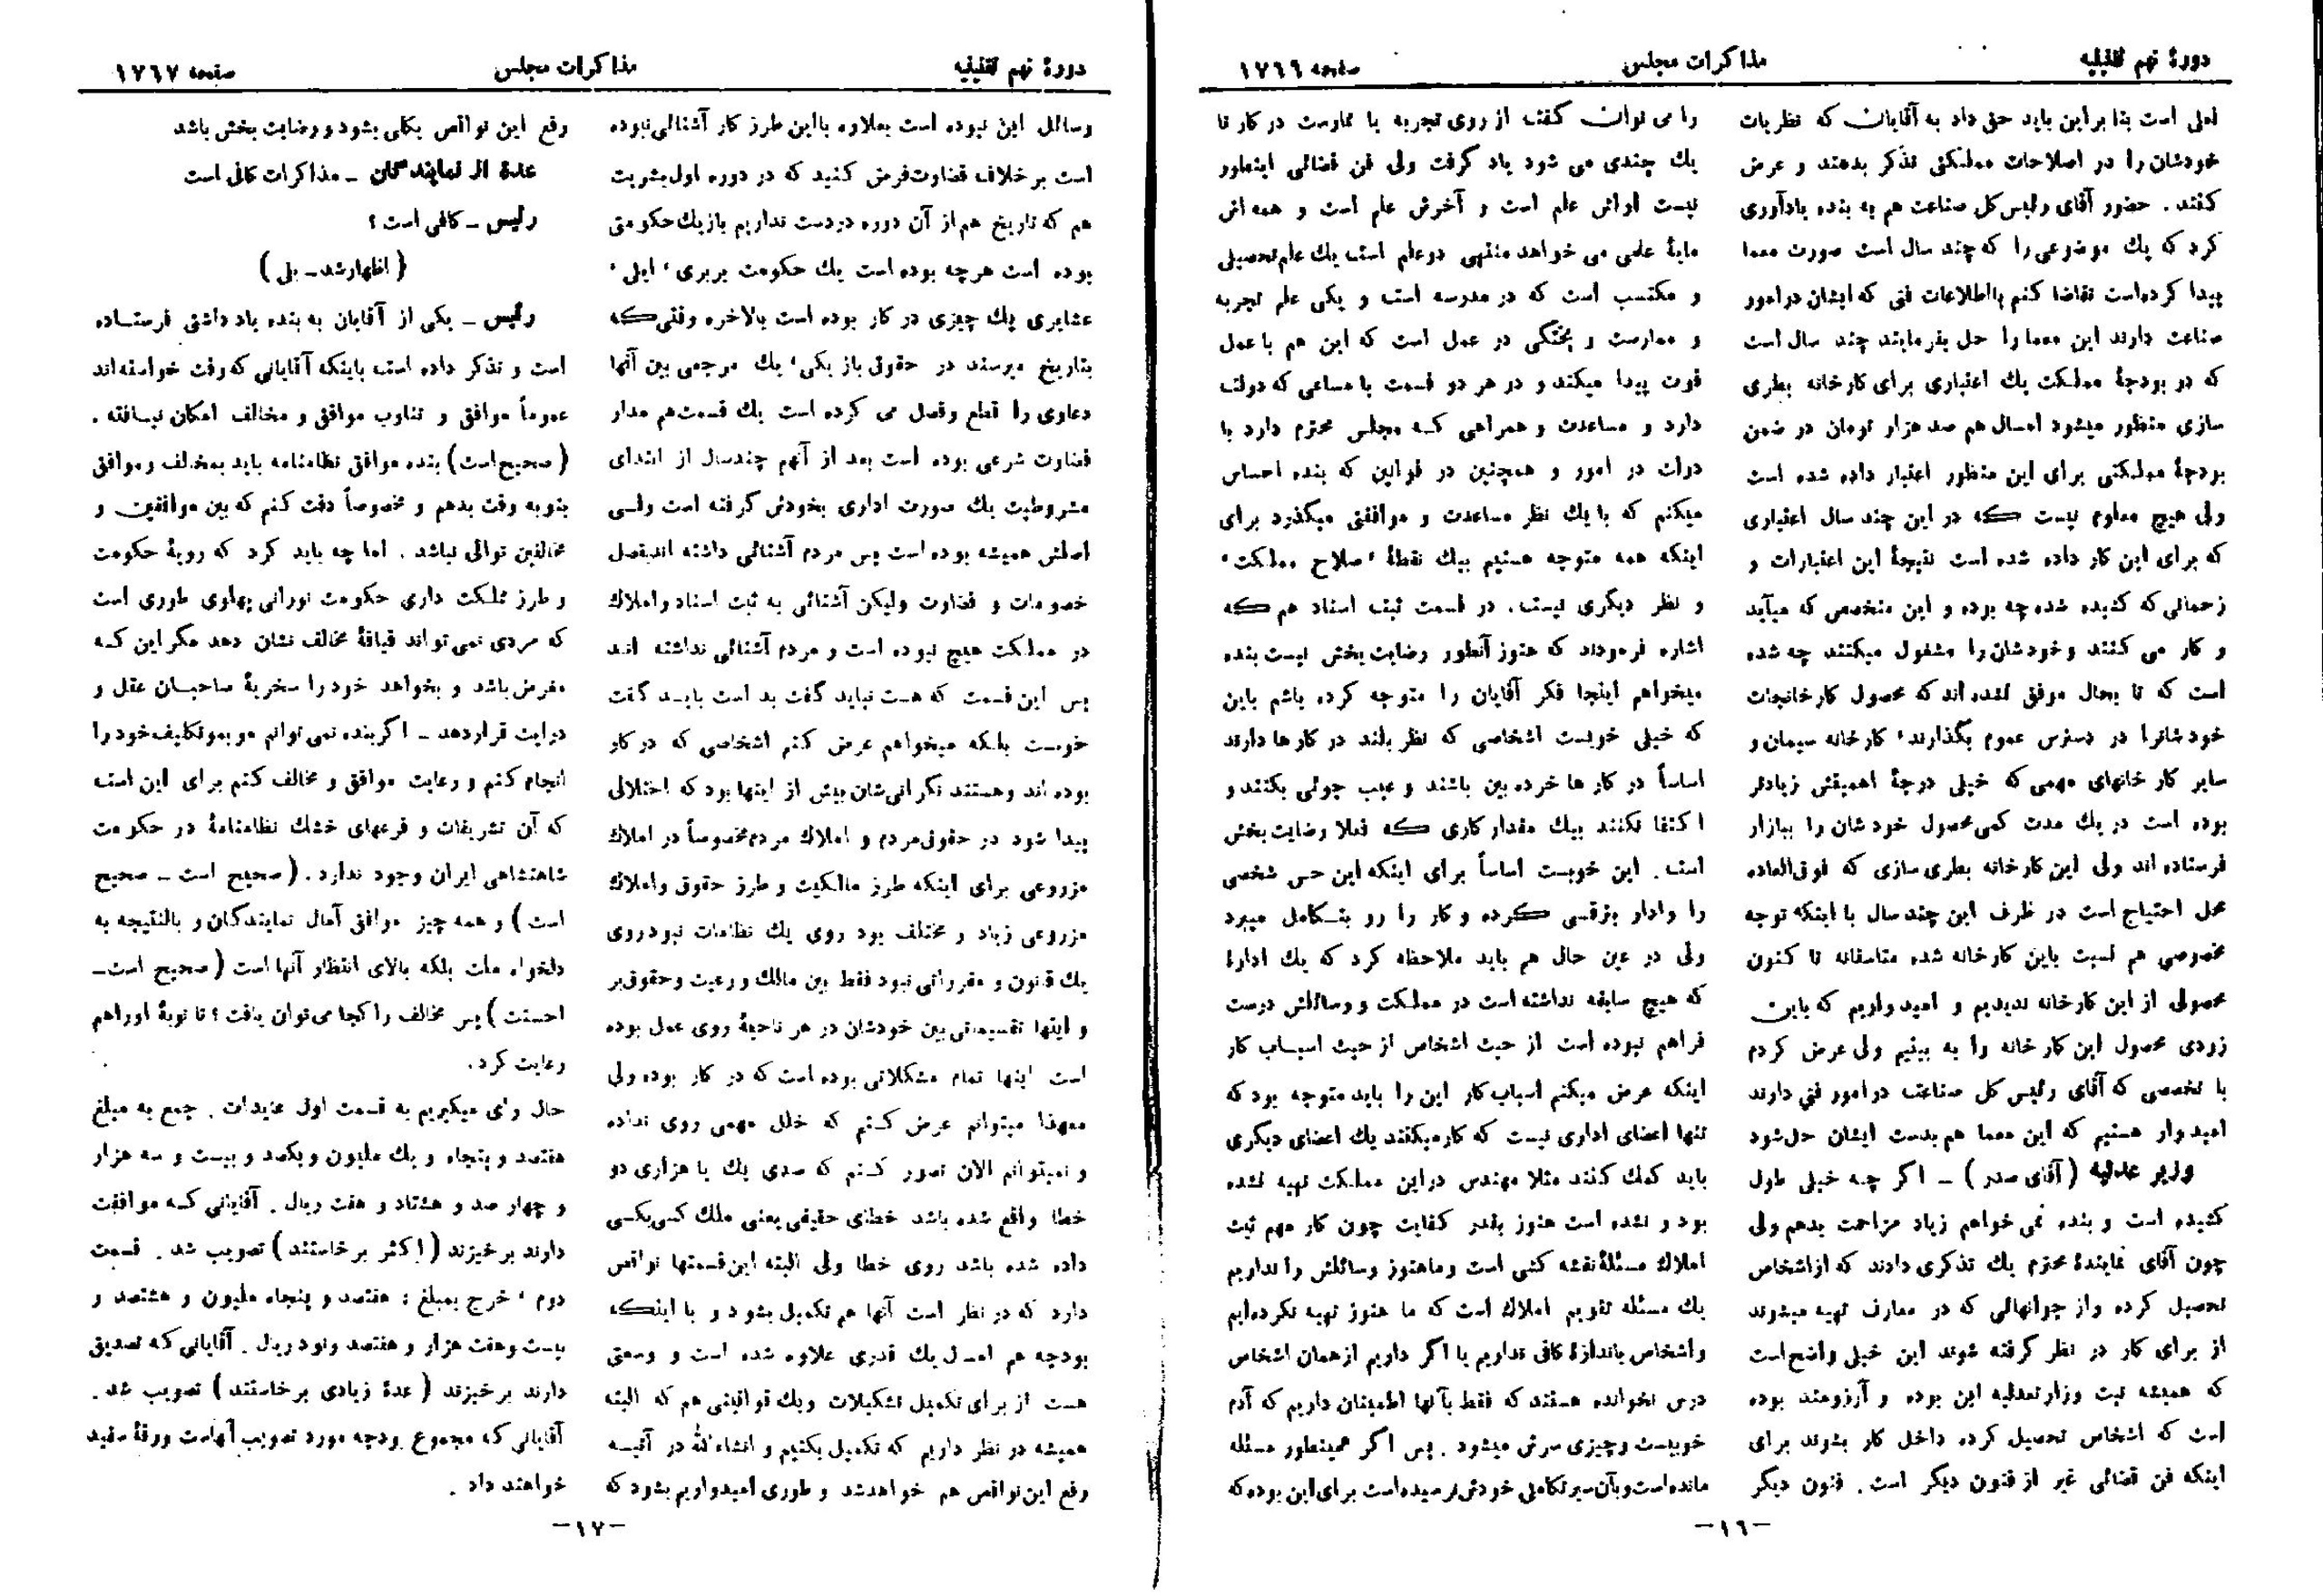 دورهٔ نهم تقنینیه
مذاکرات مجلس
صفحه ۱۷٦٦
است بنا بر این باید حق داد به آقایان که نظریات
خودشان را در اصلاحات مملکتی تذکر بدهند و عرض
کنند . حضور آقای رئیس کل صناعت هم به بنده یادآوری
کرد که یك موضوعی را که چند سال است صورت معما
پیدا کرده‌است تقاضا کنم بااطلاعات فنی که ایشان در امور
صناعت دارند این معما را حل بفرمایند چند سال است
که در بودجهٔ مملکت یك اعتباری برای کارخانه بطری
سازی منظور میشود امسال هم صد هزار تومان در ضمن
بودجهٔ مملکتی برای این منظور اعتبار داده شده است
ولی هیچ معلوم نیست که در این چند سال اعتباری
که برای این کار داده شده است نتیجهٔ این اعتبارات و
زحماتی که کشیده شده چه بوده و این متخصص که میآید
و کار می کنند و خودشان را مشغول میکنند چه شده
است که تا بحال موفق نشده اند که محصول کارخانجات
خودشانرا در دسترس عموم بگذارند، کارخانه سیمان و
سایر کار خانهای مهمی که خیلی درجهٔ اهمیتش زیادتر
بوده است در یك مدت کمی محصول خودشان را ببازار
فرستاده اند ولی این کارخانه بطری سازی که فوق‌العاده
محل احتیاج است در ظرف این چند سال با اینکه توجه
مخصوصی هم نسبت باین کارخانه شده متأسفانه تا کنون
محصولی از این کارخانه ندیدیم و امیدواریم که باین
زودی محصول این کار خانه را به بینیم ولی عرض کردم
با تخصصی که آقای رئیس کل صناعت در امور فنی دارند
امیدوار هستیم که این معما هم بدست ایشان حل شود
وزیر عدلیه (آقای صدر) ـ اگر چه خیلی طول
کشیده است و بنده نمی خواهم زیاد مزاحمت بدهم ولی
چون آقای نمایندهٔ محترم یك تذکری دادند که از اشخاص
تحصیل کرده و از جوانهائی که در معارف تهیه میشوند
از برای کار در نظر گرفته شوند این خیلی واضح است
که همیشه نیت وزارتعدلیه این بوده و آرزومند بوده
است که اشخاص تحصیل کرده داخل کار بشوند برای
اینکه فن قضائی غیر از فنون دیگر است . فنون دیگر
را می توان گفت از روی تجربه یا ممارست در کار تا
یك چندی می شود یاد گرفت ولی فن قضائی اینطور
نیست اولش علم است و آخرش علم است و همه اش
مایهٔ علمی می خواهد منتهی دو علم است یك علم تحصیلی
و مکتسب است که در مدرسه است و یکی علم تجربه
و ممارست و پختگی در عمل است که این هم با عمل
قوت پیدا میکند و در هر دو قسمت با مساعی که دولت
دارد و مساعدت و همراهی که مجلس محترم دارد با
دولت در امور و همچنین در قوانین که بنده احساس
میکنم که با یك نظر مساعدت و موافقتی میگذرد برای
اینکه همه متوجه هستیم بیك نقطهٔ ، صلاح مملکت ،
و نظر دیگری نیست . در قسمت ثبت اسناد هم که
اشاره فرمودند که هنوز آنطور رضایت بخش نیست بنده
میخواهم اینجا فکر آقایان را متوجه کرده باشم باین
که خیلی خوبست اشخاصی که نظر بلند در کار ها دارند
اساساً در کار ها خرده بین باشند و عیب جوئی بکنند و
اکتفا نکنند بیك مقدار کاری که فعلا رضایت بخش
است . این خوبست اساساً برای اینکه این حس شخصی
را وادار بترقی کرده و کار را رو بتکامل میبرد
ولی در عین حال هم باید ملاحظه کرد که یك ادارهٔ
که هیچ سابقه نداشته است در مملکت و وسائلش درست
فراهم نبوده است از حیث اشخاص از حیث اسباب کار
اینکه عرض میکنم اسباب کار این را باید متوجه بود که
تنها اعضای اداری نیست که کار میکنند یك اعضای دیگری
باید کمك کنند مثلا مهندس در این مملکت تهیه نشده
بود و نشده است هنوز بقدر کفایت چون کار مهم ثبت
املاك مسئلهٔ نقشه کشی است و ما هنوز وسائلش را نداریم
یك مسئله تقویم املاك است که ما هنوز تهیه نکرده‌ایم
و اشخاص باندازهٔ کافی نداریم یا اگر داریم از همان اشخاص
درس نخوانده هستند که فقط بآنها اطمینان داریم که آدم
خوبیست و چیزی سرش میشود . پس اگر همینطور مسئله
مانده است و بآن سیر تکاملی خودش نرسیده‌است برای این بوده که
ـ۱٦ـ
دورهٔ نهم تقنینیه
مذاکرات مجلس
صفحه ۱۷٦۷
وسائل این نبوده است بعلاوه بااین طرز کار آشنائی نبوده
است بر خلاف قضاوت فرض کنید که در دوره اول بشریت
هم که تاریخ هم از آن دوره در دست نداریم باز یك حکومتی
بوده است هرچه بوده است یك حکومت بربری ، ایلی ،
عشایری یك چیزی در کار بوده است بالاخره وقتی که
بتاریخ میرسند در حقوق باز یکی، یك مرجعی بین آنها
دعاوی را قطع و فصل می کرده است یك قسمت هم مدار
قضاوت شرعی بوده است بعد از آنهم چند سال از ابتدای
مشروطیت یك صورت اداری بخودش گرفته است ولی
اصلش همیشه بوده است پس مردم آشنائی داشته اند بفصل
خصومات و قضاوت ولیکن آشنائی به ثبت اسناد و املاك
در مملکت هیچ نبوده است و مردم آشنائی نداشته اند
پس این قسمت که هست نباید گفت بد است باید گفت
خوبست بلکه میخواهم عرض کنم اشخاصی که در کار
بوده اند و هستند نگرانی‌شان بیش از اینها بود که اختلالی
پیدا شود در حقوق مردم و املاك مردم مخصوصاً در املاك
مزروعی برای اینکه طرز مالکیت و طرز حقوق و املاك
مزروعی زیاد و مختلف بود روی یك نظامات نبود روی
یك قانون و مقرراتی نبود فقط بین مالك و رعیت و حقوق بر
و اینها تقسیماتی بین خودشان در هر ناحیهٔ روی عمل بوده
است اینها تمام مشکلاتی بوده است که در کار بوده ولی
معهذا میتوانم عرض کنم که خلل مهمی روی نداده
و نمیتوانم الان تصور کنم که صدی یك یا هزاری دو
خطا واقع شده باشد خطای حقیقی یعنی ملك کسی بکسی
داده شده باشد روی خطا ولی البته این قسمتها نواقص
دارد که در نظر است آنها هم تکمیل بشود و با اینکه
بودجه هم امسال یك قدری علاوه شده است و وسعتی
هست از برای تکمیل تشکیلات و یك قوانینی هم که البته
همیشه در نظر داریم که تکمیل بکنیم و انشاءالله در آتیه
رفع این نواقص هم خواهد شد و طوری امیدواریم بشود که
رفع این نواقص بکلی بشود و رضایت بخش باشد
عدهٔ از نمایندگان ـ مذاکرات کافی است
رئیس ـ کافی است ؟
( اظهار شد ـ بلی )
رئیس ـ یکی از آقایان به بنده یاد داشتی فرستاده
است و تذکر داده است باینکه آقایانی که وقت خواسته‌اند
عموماً موافق و تناوب موافق و مخالف امکان نیافته .
( صحیح است ) بنده موافق نظامنامه باید بمخالف و موافق
بنوبه وقت بدهم و مخصوصاً دقت کنم که بین موافقین و
مخالفین توالی نباشد . اما چه باید کرد که رویهٔ حکومت
و طرز مملکت داری حکومت نورانی پهلوی طوری است
که مردی نمی تواند قیافهٔ مخالف نشان دهد مگر این که
مغرض باشد و بخواهد خود را سخریهٔ صاحبان عقل و
درایت قرار دهد ـ اگر بنده نمی توانم مو بمو تکلیف خود را
انجام کنم و رعایت موافق و مخالف کنم برای این است
که آن تشریفات و فرمهای خشك نظامنامهٔ در حکومت
شاهنشاهی ایران وجود ندارد . ( صحیح است ـ صحیح
است ) و همه چیز موافق آمال نمایندگان و بالنتیجه به
دلخواه ملت بلکه بالای انتظار آنها است ( صحیح است ـ
احسنت ) پس مخالف را کجا می توان یافت ؟ تا نوبهٔ او را هم
رعایت کرد .
حال رأی میگیریم به قسمت اول عایدات . جمع به مبلغ
هفتصد و پنجاه و یك ملیون و یکصد و بیست و سه هزار
و چهار صد و هشتاد و هفت ریال . آقایانی که موافقت
دارند برخیزند ( اکثر برخاستند ) تصویب شد . قسمت
دوم ، خرج بمبلغ : هفتصد و پنجاه ملیون و هشتصد و
بیست و هفت هزار و هفتصد و نود ریال . آقایانی که تصدیق
دارند برخیزند ( عدهٔ زیادی برخاستند ) تصویب شد .
آقایانی که مجموع بودجه مورد تصویب آنهاست ورقهٔ سفید
خواهند داد .
ـ۱۷ـ